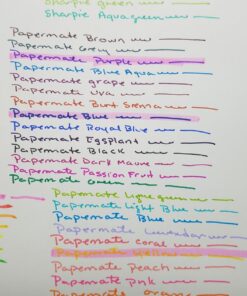 Sharpie green
Sharpie Aquagreen
Papermate Brown
Papermate Grey
Papermate Purple
Papermate Blue Aqua
Papermate grape
Papermate
Papermate Burnt Sienna
Papermate Blue
Papermate Royal Blue
Papermate Eggplant
Papermate Black
Papermate Dark Mauve
Papermate Passion Fruit
Papermate Green
Papermate Lime green
Papermate Light Blue
Papermate Blue
Papermate Lavendar
Papermate coral
Papermate Yellow
Papermate Peach
Papermate Pink
Papermate orange